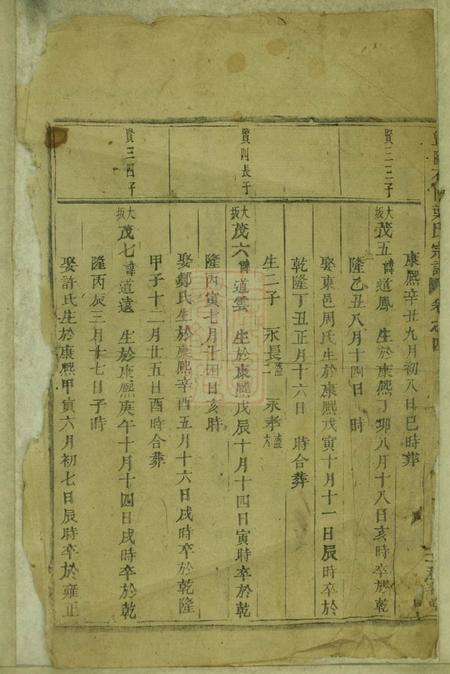 氏宗譜 卷之四
康熙辛丑九月初八日巳時葬
賢三三子
大坂茂五諱道鳳 生於康熙丁卯八月十八日亥時卒於乾
隆乙丑八月十四日 時
娶東邑周氏生於康熙戊寅十月十一日辰時卒於
乾隆丁丑正月十六日 時合葬
生二子 永長 永孝
賢四長子
大坂茂六諱道雲 生於康熙戊辰十月十四日寅時卒於乾
隆丙寅七月廿四日亥時
娶鄭氏生於康熙辛酉五月十六日戌時卒於乾隆
甲子十二月廿五日酉時合葬
賢三四子
大坂茂七諱道遠 生於康熙庚午十月十四日戌時卒於乾
隆丙辰三月廿七日子時
娶許氏生於康熙甲寅六月初七日辰時卒於雍正